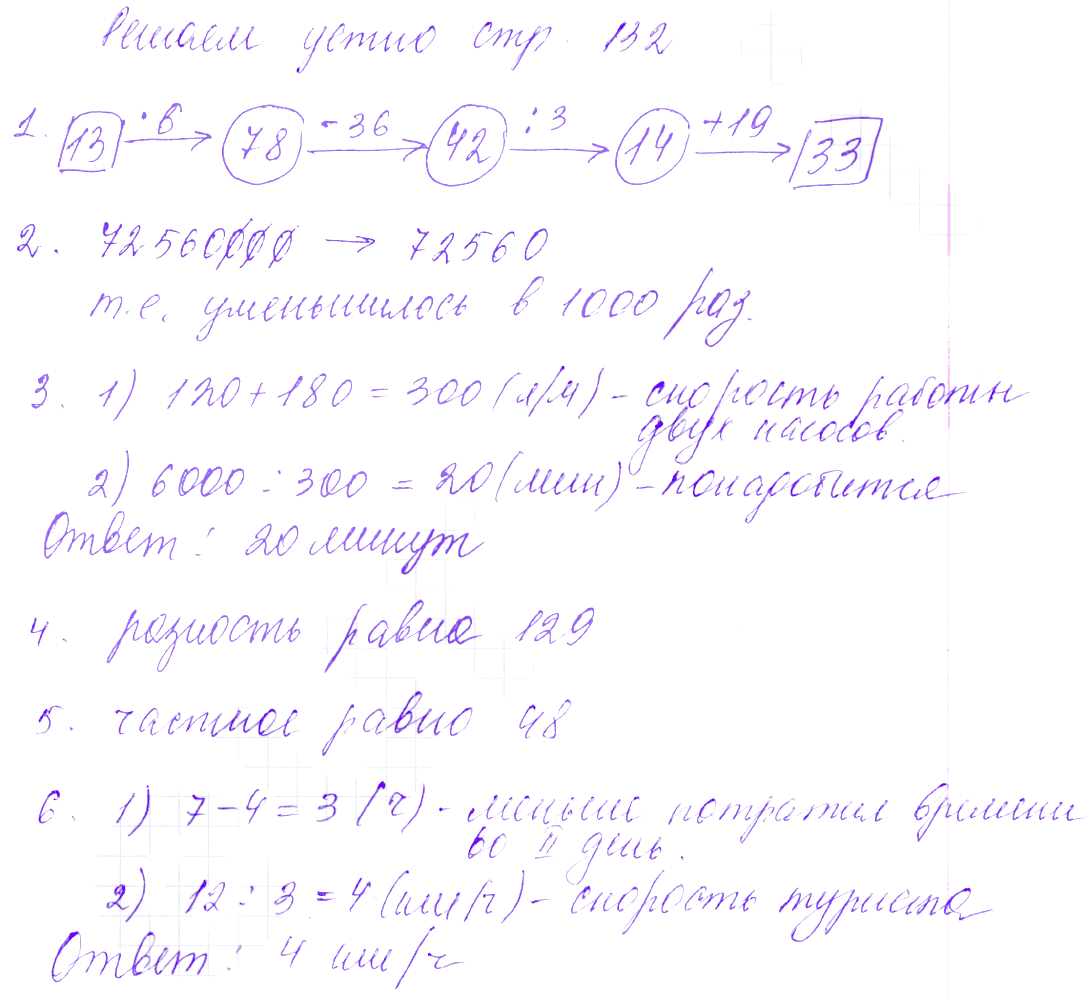 Решаем устно стр. 132
1. 13 · 6 → 78 - 36 → 42 : 3 → 14 + 19 → 33
2. 72560000 → 72560
т.е. уменьшилось в 1000 раз.
3. 1) 120 + 180 = 300 (л/м) - скорость работы
двух насосов.
2) 6000 : 300 = 20 (мин) - понадобится
Ответ: 20 минут
4. разность равна 129
5. частное равно 48
6. 1) 7 - 4 = 3 (ч) - меньше потратил времени
во II день.
2) 12 : 3 = 4 (км/ч) - скорость туриста
Ответ: 4 км/ч